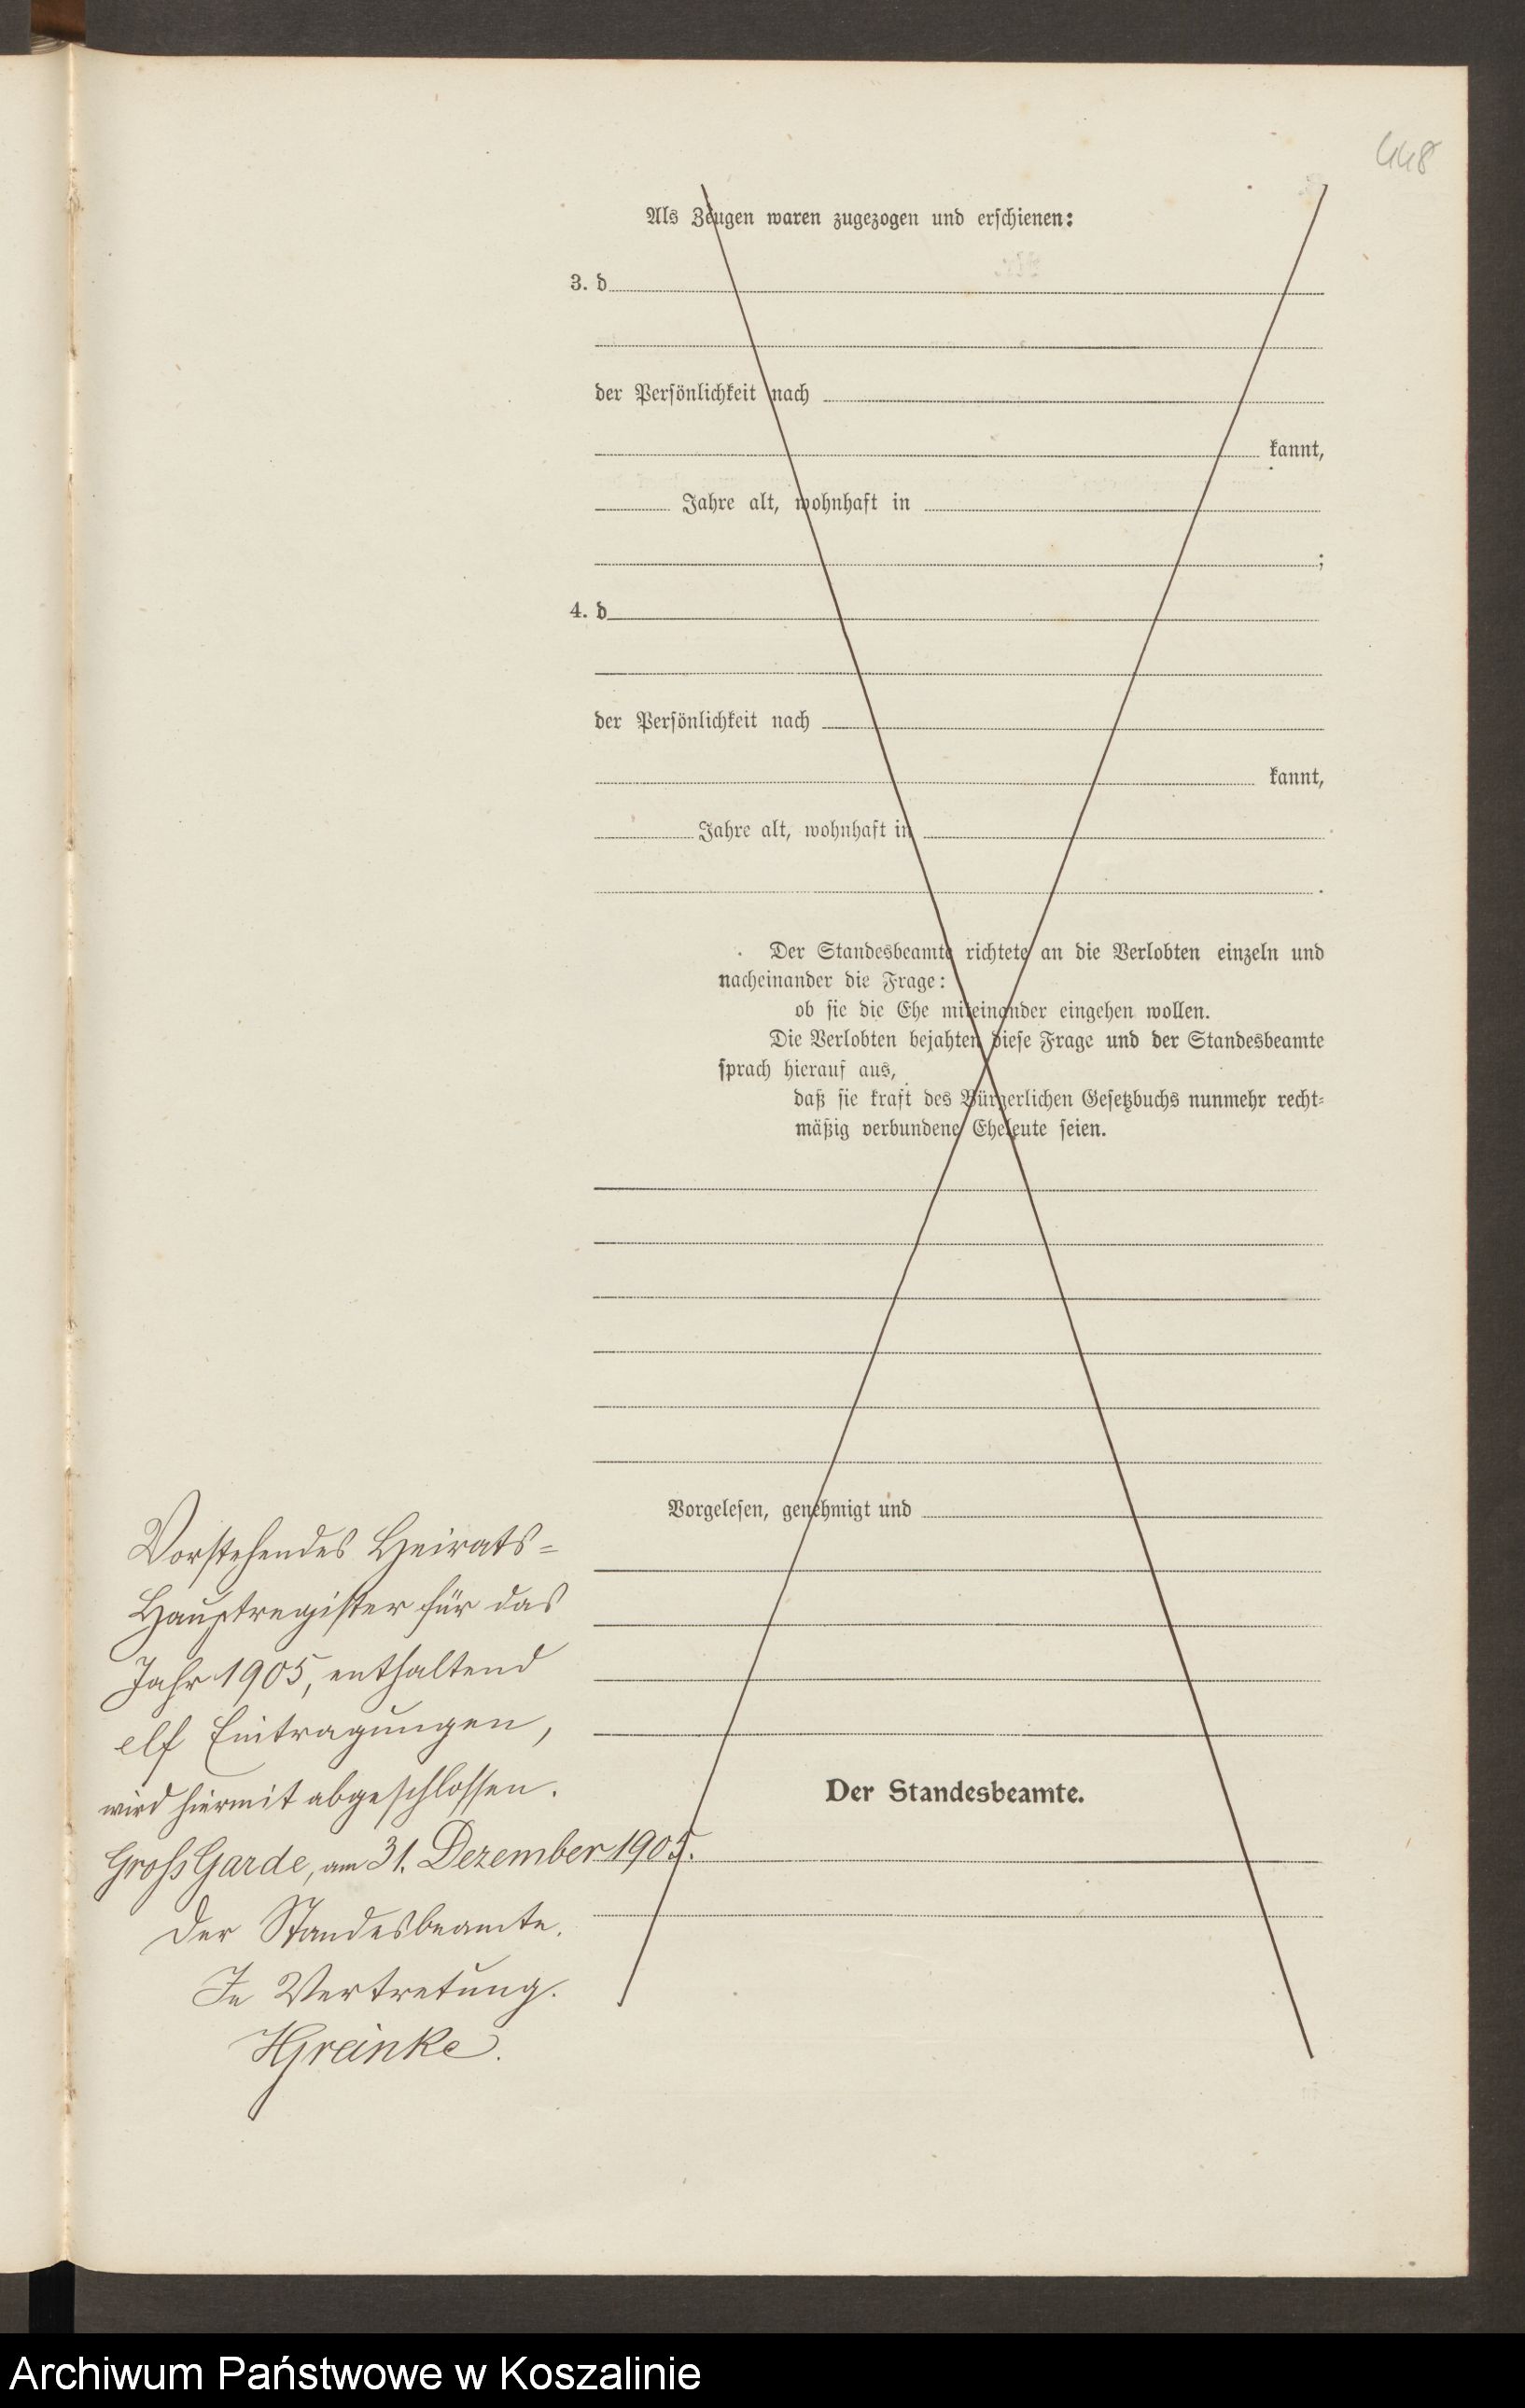 448
Als Zeugen waren zugezogen und erschienen:
3. d
der Persönlichkeit nach
kannt,
Jahre alt, wohnhaft in
;
4. d
der Persönlichkeit nach
kannt,
Jahre alt, wohnhaft in
.
Der Standesbeamte richtete an die Verlobten einzeln und
nacheinander die Frage:
ob sie die Ehe miteinander eingehen wollen.
Die Verlobten bejahten diese Frage und der Standesbeamte
sprach hierauf aus,
daß sie kraft des Bürgerlichen Gesetzbuchs nunmehr recht-
mäßig verbundene Eheleute seien.
Vorgelesen, genehmigt und
Vorstehendes Heirats-
Hauptregister für das
Jahr 1905, enthaltend
elf Eintragungen,
wird hiermit abgeschlossen.
Gross Garde, am 31. Dezember 1905.
Der Standesbeamte.
In Vertretung.
Der Standesbeamte.
Archiwum Państwowe w Koszalinie